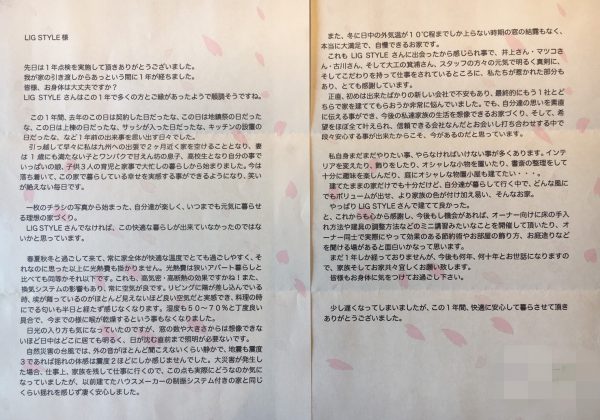 LIG STYLE 様
先日は1年点検を実施して頂きありがとうございました。
我が家の引き渡しからあっという間に1年が経ちました。
皆様、お身体は大丈夫ですか？
LIG STYLE さんはこの1年で多くの方とご縁があったようで順調そうですね。
この1年間、去年のこの日は契約した日だったな、この日は地鎮祭の日だったな、この日は上棟の日だったな、サッシが入った日だったな、キッチンの設置の日だったな、など1年前の出来事を思い出す日々でした。
引っ越して早々に私は九州への出張で2ヶ月近く家を空けることとなり、妻は1歳にも満たない子とワンパクで甘えん坊の息子、高校生となり自分の事でいっぱいの娘、子供3人の育児と家事で大忙しの暮らしから始まりました。今は落ち着いて、この家で暮らしている幸せを実感する事ができるようになり、笑いが絶えない毎日です。
一枚のチラシの写真から始まった、自分達が楽しく、いつまでも元気に暮らせる理想の家づくり。
LIG STYLE さんでなければ、この快適な暮らしが出来ていなかったのではないかと思っています。
春夏秋冬と過ごして来て、常に家全体が快適な温度でとても過ごしやすく、それなのに思った以上に光熱費も掛かりません。光熱費は狭いアパート暮らしと比べても同等かそれ以下です。これも、高気密・高断熱の効果ですかね！また、換気システムの影響もあり、常に空気が良です。リビングに陽が差し込んでいる時、埃が舞っているのがほとんど見えないほど良い空気だと実感でき、料理の時にでる匂いも半日と経たず感じなくなります。湿度も50〜70％と丁度良い具合で、今までの様に喉が乾燥するという事もなくなりました。
日光の入り方も気になっていたのですが、窓の数や大きさからは想像できないほど日中はどこに居ても明るく、日が沈む直前まで照明が必要ないです。
自然災害の台風では、外の音がほとんど聞こえないくらい静かで、地震も震度3であれば揺れの体感は震度2ほどにしか感じませんでした。大災害が発生した場合、仕事上、家族を残して仕事に行くので、この点も実際にどうなのか気になっていましたが、以前建てたハウスメーカーの制振システム付きの家と同じくらい揺れを感じず凄く安心しました。
また、冬に日中の外気温が10℃程までしか上らない時期の窓の結露もなく、本当に大満足で、自慢できるお家です。
これも LIG STYLE さんに出会ったから感じられ事で、井上さん・マツコさん・古川さん、そして大工の箕浦さん、スタッフの方々の元気で明るく真剣に、そしてこだわりを持って仕事をされているところに、私たちが惹かれた部分もあり、とても感謝しています。
正直、初めは出来たばかりの新しい会社で不安もあり、最終的にもう1社とどちらで家を建ててもらおうか非常に悩んでいました。でも、自分達の思いを素直に伝える事ができ、今後の私達家族の生活を想像できるお家づくり、そして、希望をほぼ全て叶えられ、信頼できる会社なんだとお会いし打ち合わせする中で段々安心する事が出来たからこそ、今があるのだと思っています。
私自身まだまだやりたい事、やらなければいけない事が多くあります。インテリアを変えたり、飾りをしたり、オシャレな小物を置いたり、書斎の整理をして十分に趣味を楽しんだり、庭にオシャレな物置小屋も建てたい・・・。
建てたままの家だけでも十分だけど、自分達が暮らして行く中で、どんな風にでもボリュームが出せ、より家族の色が付け加え易い、そんなお家。
やっぱり LIG STYLE さんで建てて良かった。
と、これからも心から感謝し、今後もし機会があれば、オーナー向けに床の手入れ方法や建具の調整方法などのミニ講習みたいなことを開催して頂いたり、オーナー同士で実際にやって効果のある節約術やお部屋の飾り方、お庭造りなどを聞ける場があると面白いかなって思います。
まだ1年しか経っておりませんが、今後も何年、何十年とお世話になりますので、家族そしてお家共々宜しくお願い致します。
皆様もお身体に気をつけてお過ごし下さい。
少し遅くなってしまいましたが、この1年間、快適に安心して暮らさせて頂きありがとうございました。